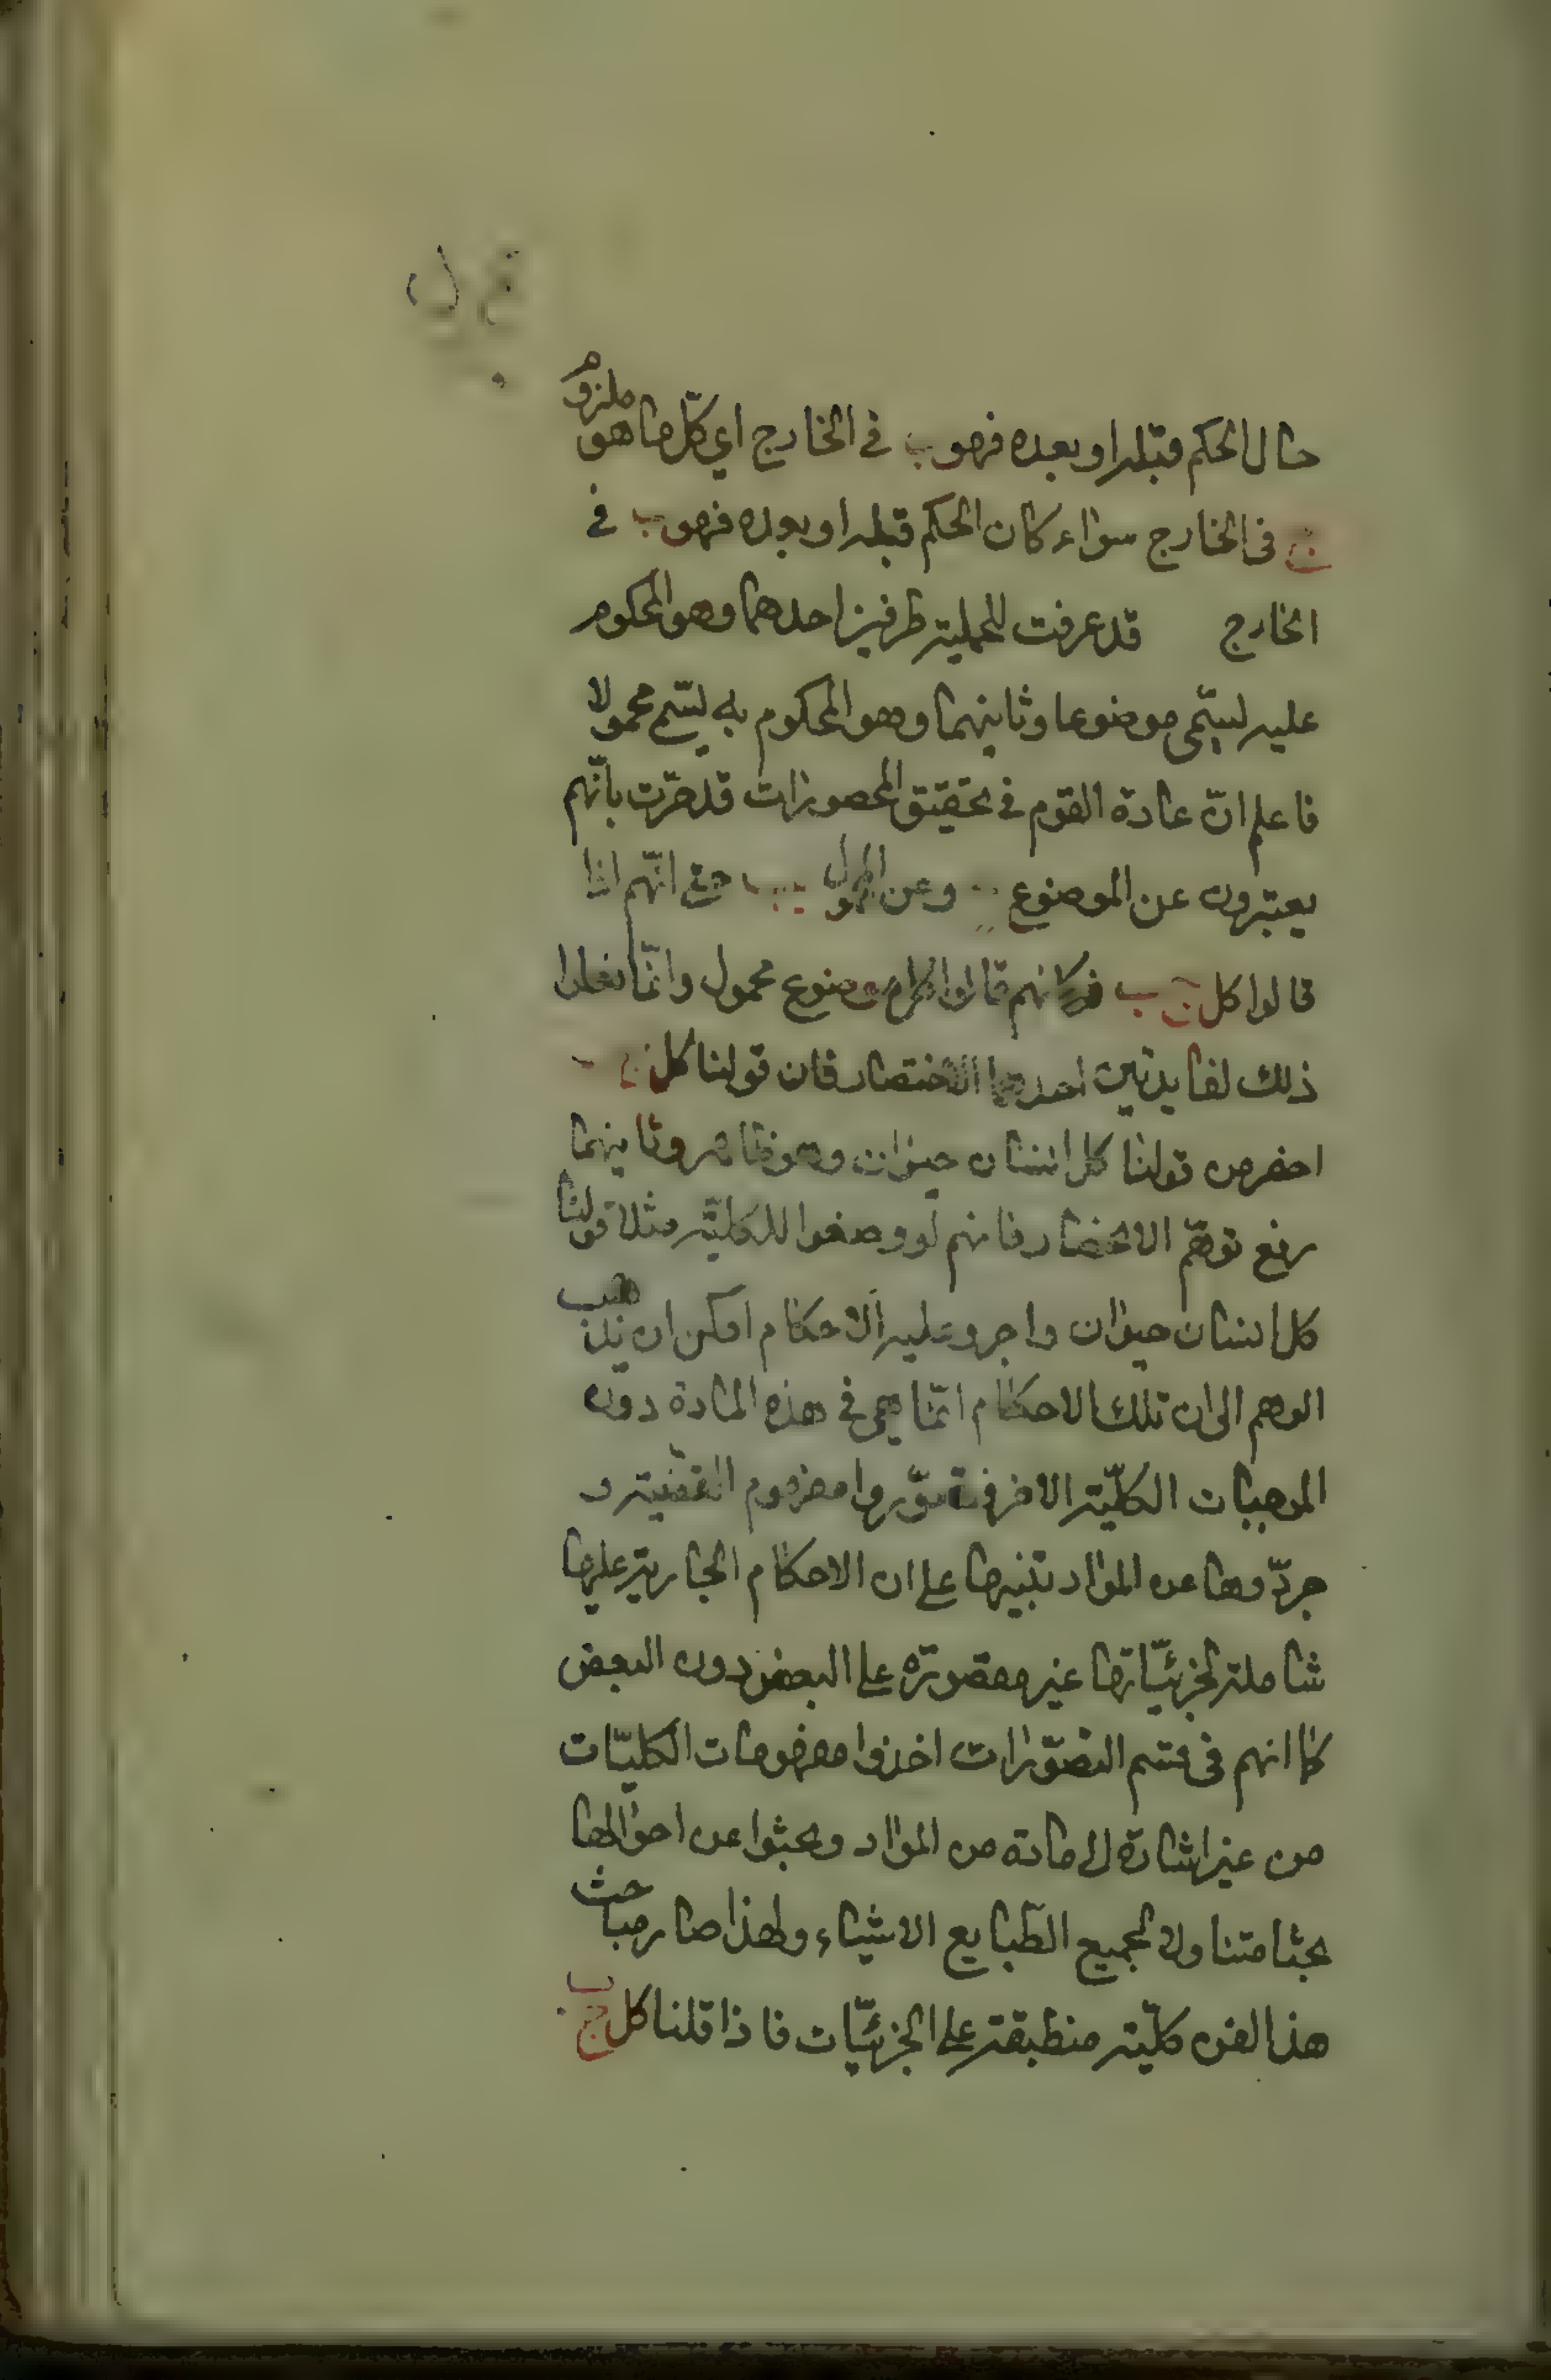 حال الحكم قبله او بعده فهو ب في الخارج اي كلّ ما هو ملزوم
ج في الخارج سواء كان الحكم قبله او بعده فهو ب في
الخارج قد عرفت للحملية طرفين احدهما وهو المحكوم
عليه ليسمّى موضوعا وثانيهما وهو المحكوم به يسمّى محمولا
فاعلم انّ عادة القوم في تحقيق المحصورات قد جرت بانّهم
يعبرون عن الموضوع وعن المحمول ب حتى انّهم اذا
قالوا كل ج ب فكانهم قالوا كل موضوع محمول وانّما فعلوا
ذلك لفايدتين احدهما الاختصار فان قولنا كل ج ب
اخصر من قولنا كل انسان حيوان وهو ظاهر وثانيهما
رفع توهّم الانحصار فانهم لو وضعوا للكليّة مثلا قولنا
كل انسان حيوان واجروا عليه الاحكام امكن ان يذهب
الوهم الى ان تلك الاحكام انّما هي في هذه المادة دون
الموجبات الكليّة الاخر فتصوّروا مفهوم القضية و
جرّدوها عن المواد تنبيها على ان الاحكام الجارية عليها
شاملة لجزئيّاتها غير مقصورة على البعض دون البعض
كما انهم في قسم التصوّرات اخذوا مفهومات الكليّات
من غير اشارة الى مادة من المواد وبحثوا عن احوالها
بحثا متناولا لجميع الطبايع الاشياء ولهذا صار مباحث
هذا الفن كليّة منطبقة على الجزئيّات فاذا قلنا كل ج ب